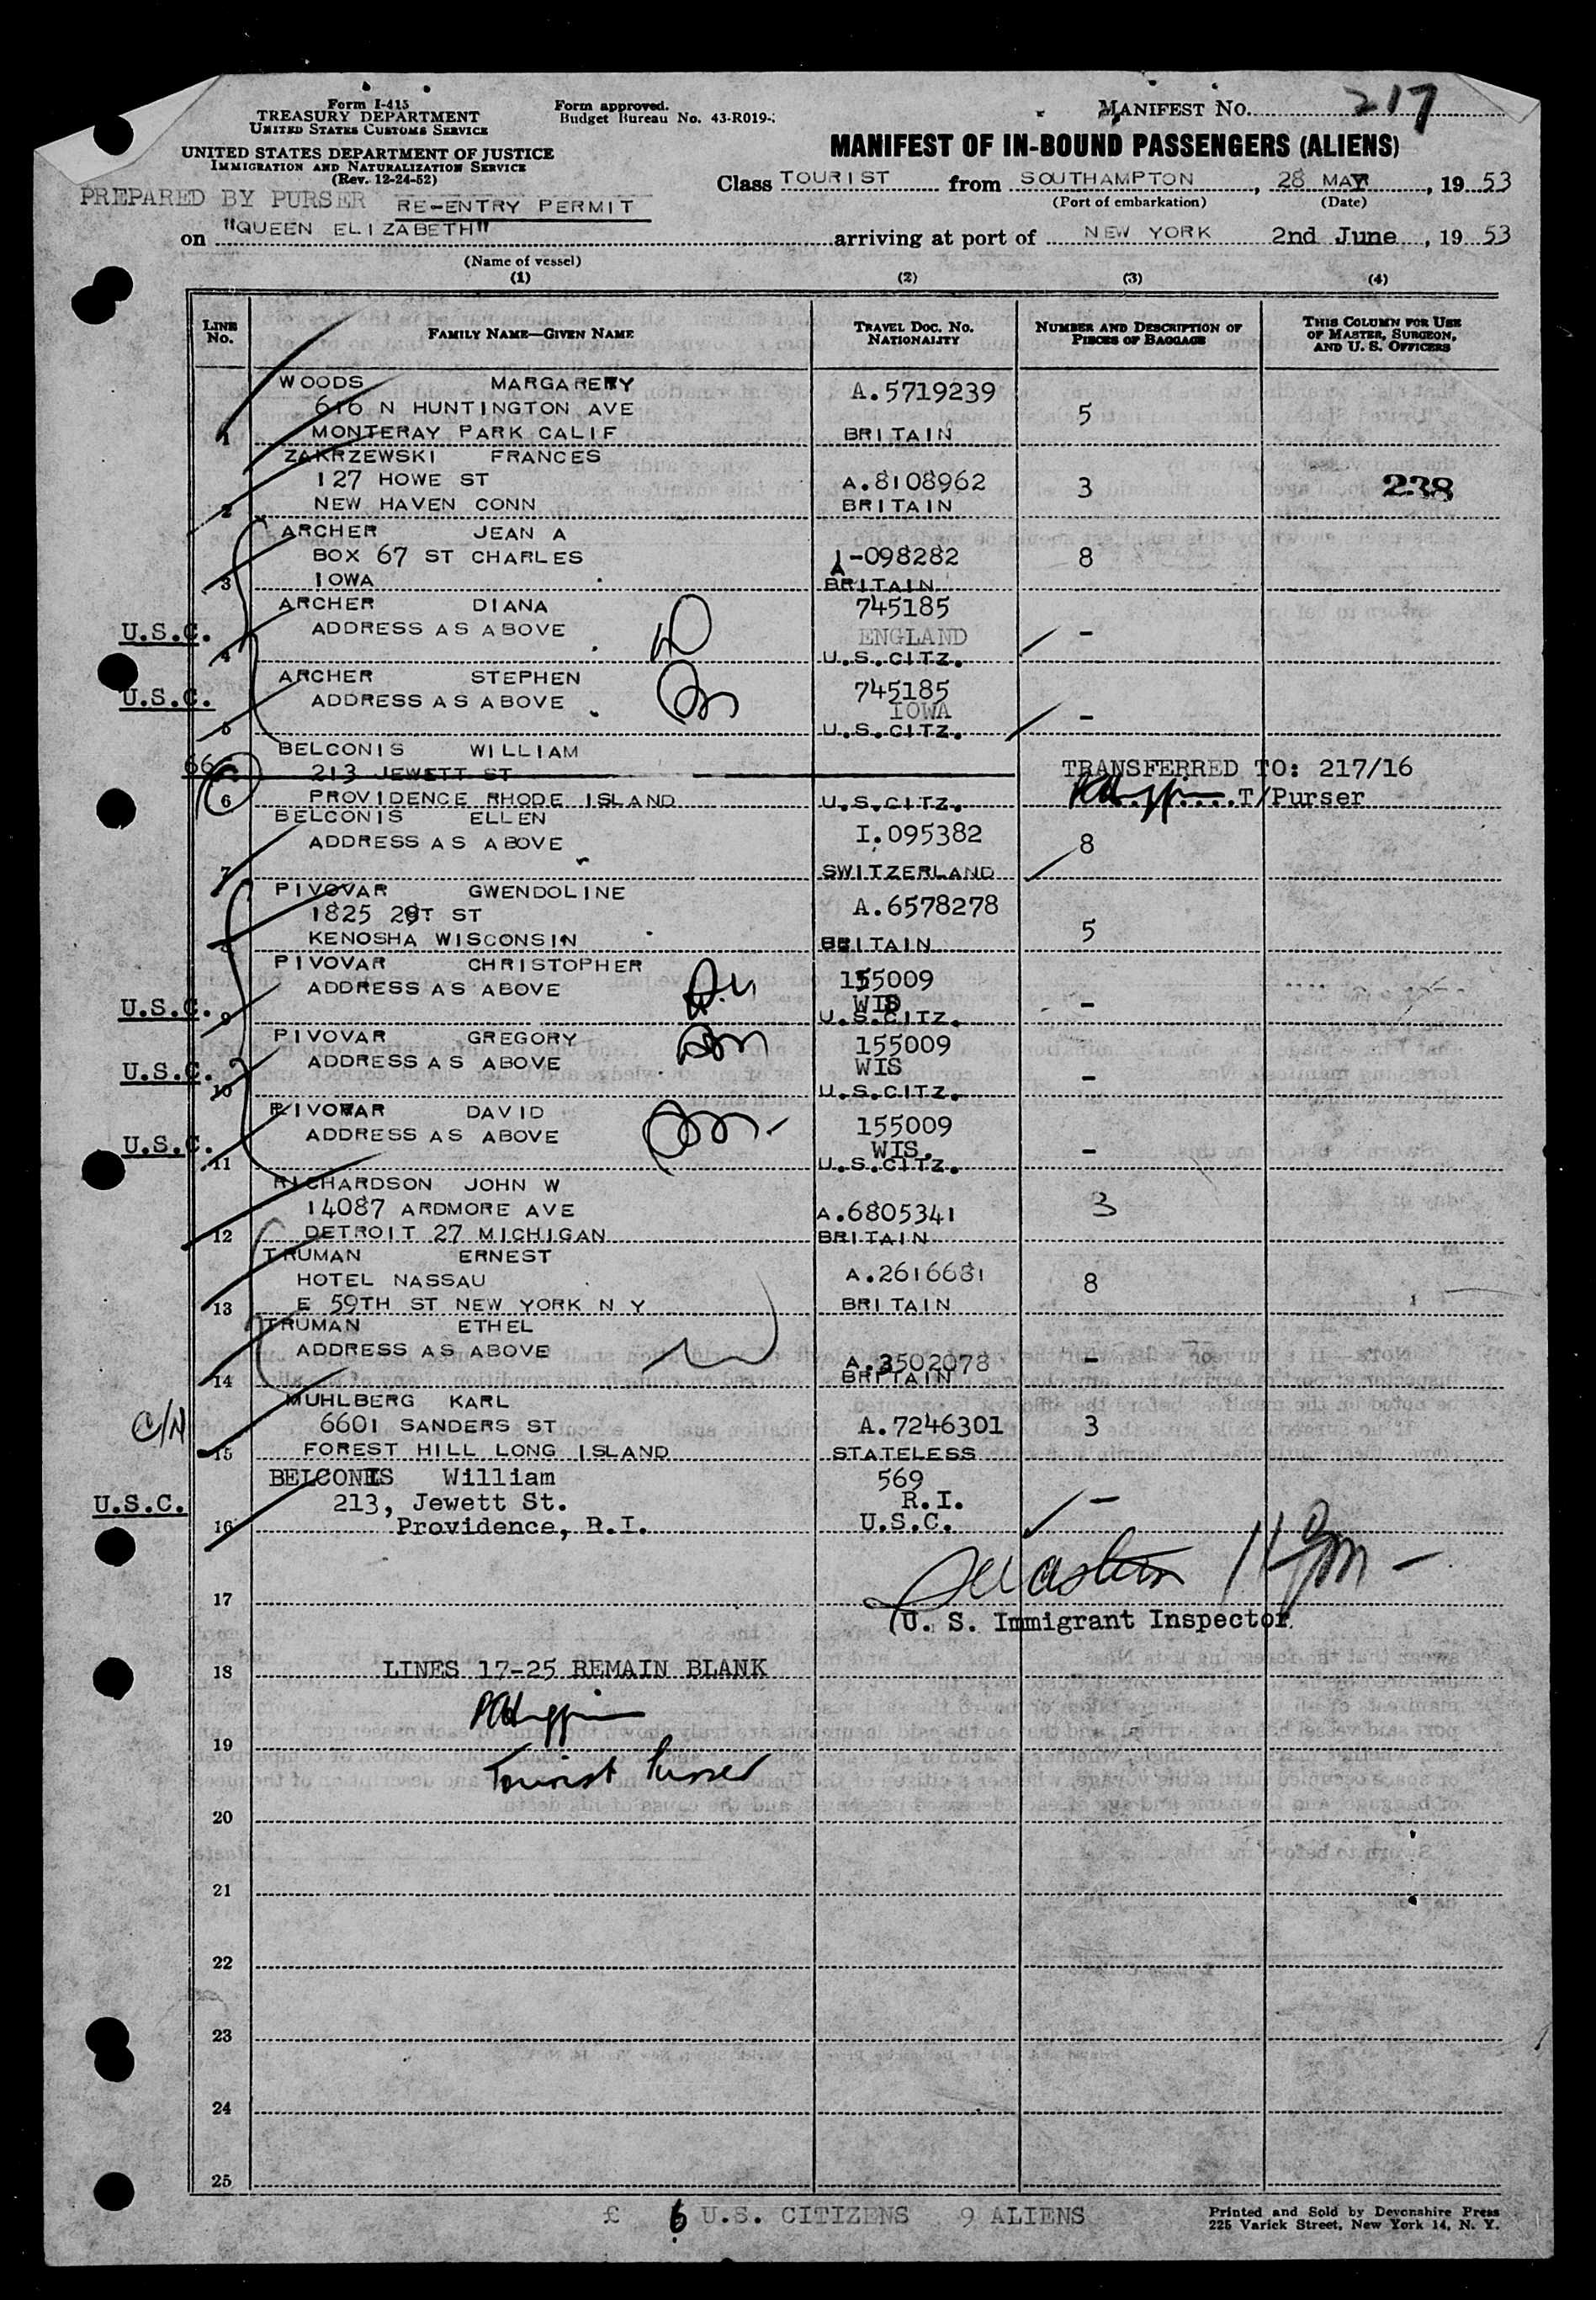 Form I-415
TREASURY DEPARTMENT
UNITED STATES CUSTOMS SERVICE
UNITED STATES DEPARTMENT OF JUSTICE
IMMIGRATION AND NATURALIZATION SERVICE
(Rev. 12-24-52)
Form approved.
Budget Bureau No. 43-R019-
MANIFEST NO. 217
MANIFEST OF IN-BOUND PASSENGERS (ALIENS)
Class TOURIST from SOUTHAMPTON, 28 MAY, 19 53
(Port of embarkation) (Date)
PREPARED BY PURSER RE-ENTRY PERMIT
on "QUEEN ELIZABETH" arriving at port of NEW YORK 2nd June, 19 53
(Name of vessel)
(1) (2) (3) (4)
LINE NO. FAMILY NAME—GIVEN NAME TRAVEL DOC. NO. NATIONALITY NUMBER AND DESCRIPTION OF PIECES OF BAGGAGE THIS COLUMN FOR USE OF MASTER, SURGEON, AND U. S. OFFICERS
WOODS MARGARERY A.5719239
616 N HUNTINGTON AVE 5
1 MONTERAY PARK CALIF BRITAIN
ZAKRZEWSKI FRANCES
127 HOWE ST A.8108962 3 238
2 NEW HAVEN CONN BRITAIN
ARCHER JEAN A
BOX 67 ST CHARLES -098282 8
3 IOWA BRITAIN
ARCHER DIANA 745185
U.S.C. ADDRESS AS ABOVE ENGLAND -
4 U.S.CITZ.
ARCHER STEPHEN 745185
U.S.C. ADDRESS AS ABOVE IOWA -
5 U.S.CITZ.
BELCONIS WILLIAM
66 213 JEWETT ST TRANSFERRED TO: 217/16
6 PROVIDENCE RHODE ISLAND U.S.CITZ. T/Purser
BELCONIS ELLEN I.095382
ADDRESS AS ABOVE 8
7 SWITZERLAND
PIVOVAR GWENDOLINE A.6578278
1825 29T ST 5
8 KENOSHA WISCONSIN BRITAIN
PIVOVAR CHRISTOPHER 155009
ADDRESS AS ABOVE WIS
U.S.C. 9 U.S.CITZ. -
PIVOVAR GREGORY 155009
U.S.C. ADDRESS AS ABOVE WIS -
10 U.S.CITZ.
PIVOVAR DAVID 155009
U.S.C. ADDRESS AS ABOVE WIS. -
11 U.S.CITZ.
RICHARDSON JOHN W
14087 ARDMORE AVE A.6805341 3
12 DETROIT 27 MICHIGAN BRITAIN
TRUMAN ERNEST
HOTEL NASSAU A.2616681 8
13 E 59TH ST NEW YORK N Y BRITAIN
TRUMAN ETHEL
ADDRESS AS ABOVE A.3502078 -
14 BRITAIN
MUHLBERG KARL
C/N 6601 SANDERS ST A.7246301 3
15 FOREST HILL LONG ISLAND STATELESS
BELCONIS William 569
U.S.C. 213, Jewett St. R.I. -
16 Providence, R.I. U.S.C.
17
U. S. Immigrant Inspector
18 LINES 17-25 REMAIN BLANK
19
Tourist Purser
20
21
22
23
24
25
£ 6 U.S. CITIZENS 9 ALIENS
Printed and Sold by Devonshire Press
225 Varick Street, New York 14, N. Y.